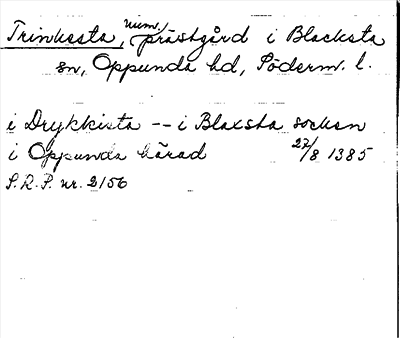 Trinkesta, num, prästgård i Blacksta
sn, Oppunda hd, Söderm. l.
i Drykkista -- i Blaxsta socken
i Oppunda härad 27/8 1385
S.R.P. nr. 2156